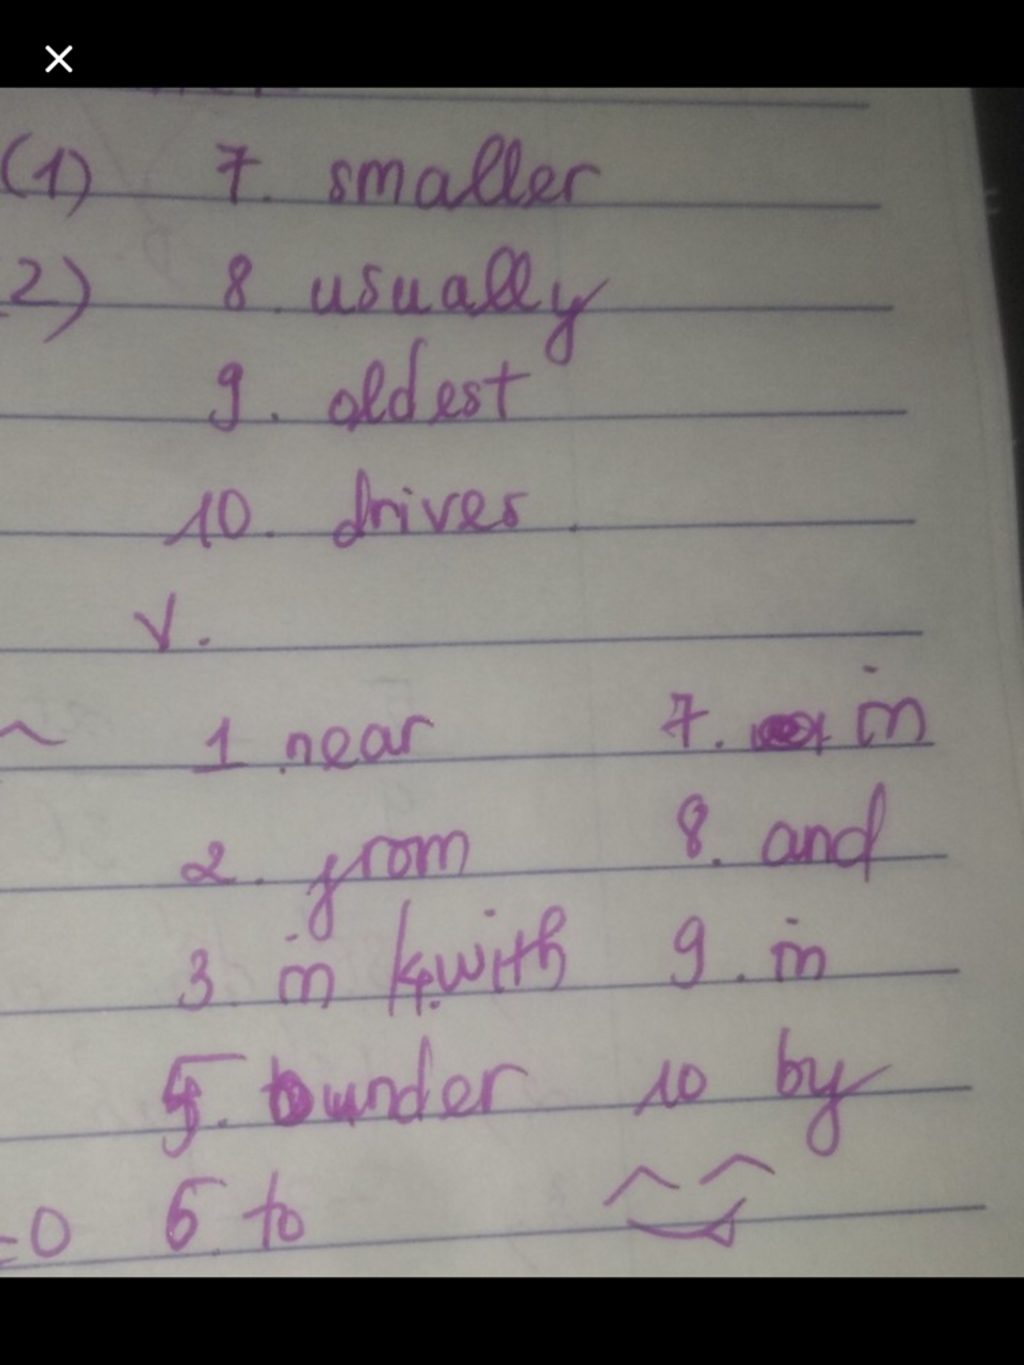 (1) 7. smaller
2) 8. usually
9. oldest
10. drives.
V.
1. near 7. in
2. from 8. and
3. in 4. with 9. in
5. under 10 by
=0 6 to